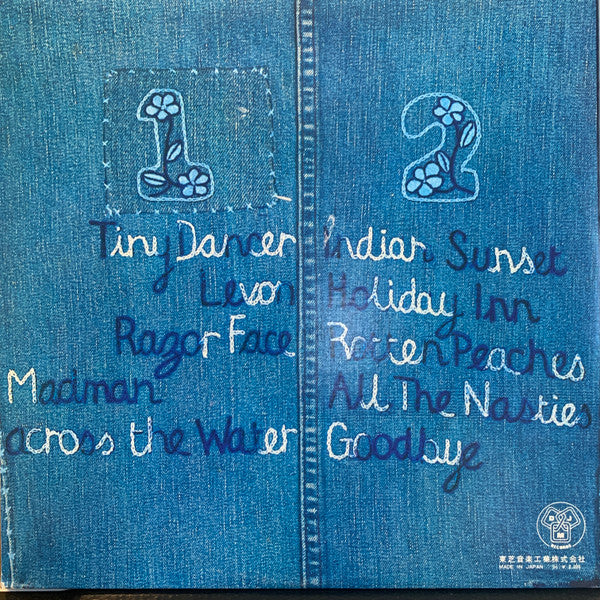 1
Tiny Dancer
Levon
Razor Face
Madman
across the Water
2
Indian Sunset
Holiday Inn
Rotten Peaches
All The Nasties
Goodbye
DJM
RECORDS
東芝音楽工業株式会社
MADE IN JAPAN